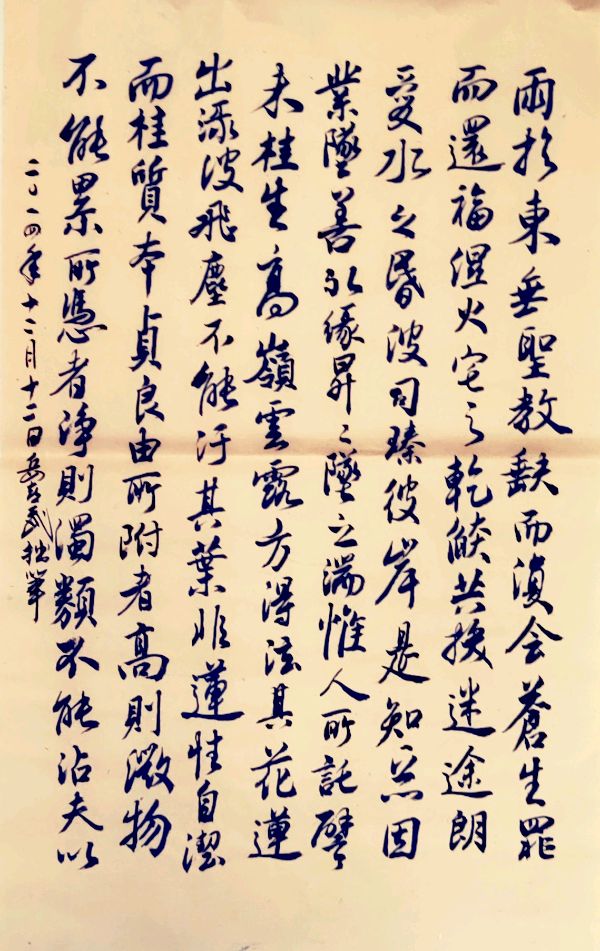 雨於東垂聖教缺而復全蒼生罪
而還福濕火宅之乾燄共拔迷途朗
愛水之昏波同臻彼岸是知惡因
業墜善以緣昇〻墜之端惟人所託譬
夫桂生高嶺雲露方得泫其花蓮
出淥波飛塵不能汙其葉非蓮性自潔
而桂質本貞良由所附者高則微物
不能累所憑者淨則濁類不能沾夫以
二〇一四年十二月十二日拙筆